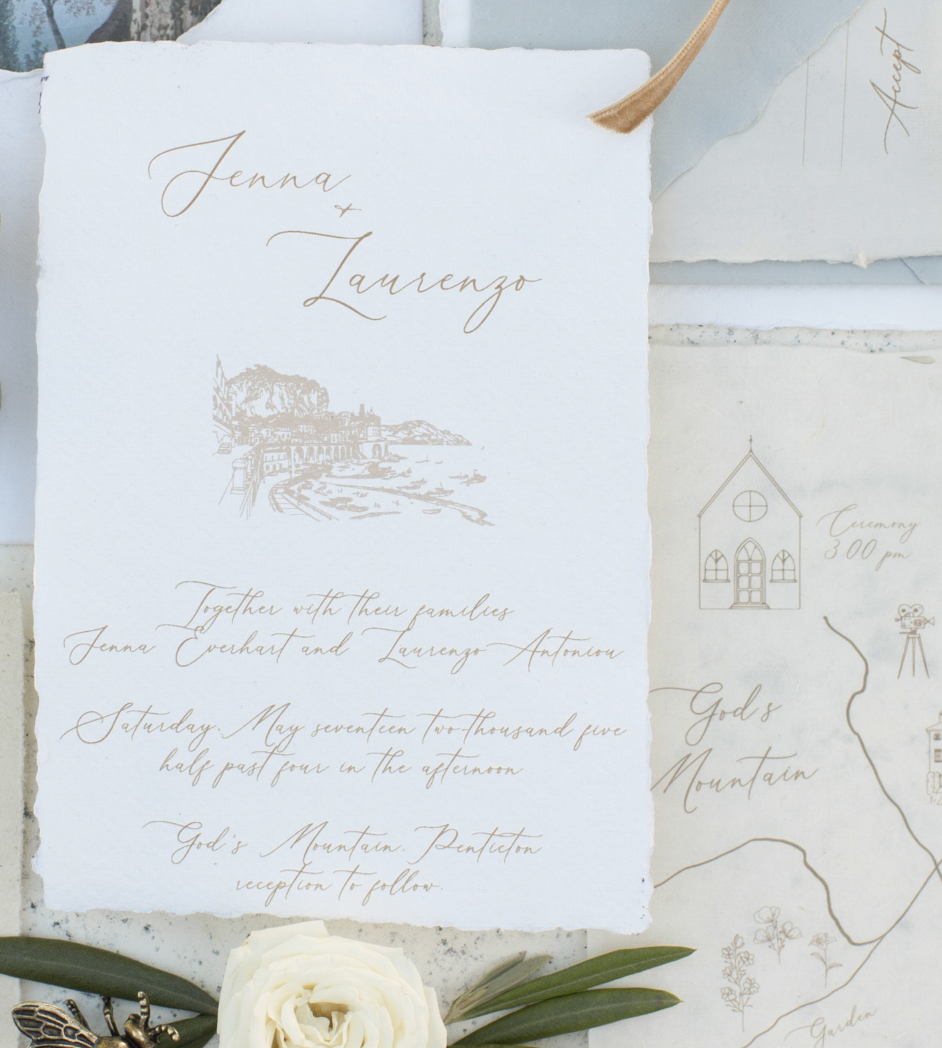 Jenna
+
Laurenzo
Together with their families
Jenna Everhart and Laurenzo Antoniou
Saturday. May seventeen two thousand five
half past four in the afternoon
God's Mountain. Penticton
reception to follow.
Accept
Ceremony
3:00 pm
God's
Mountain
Garden